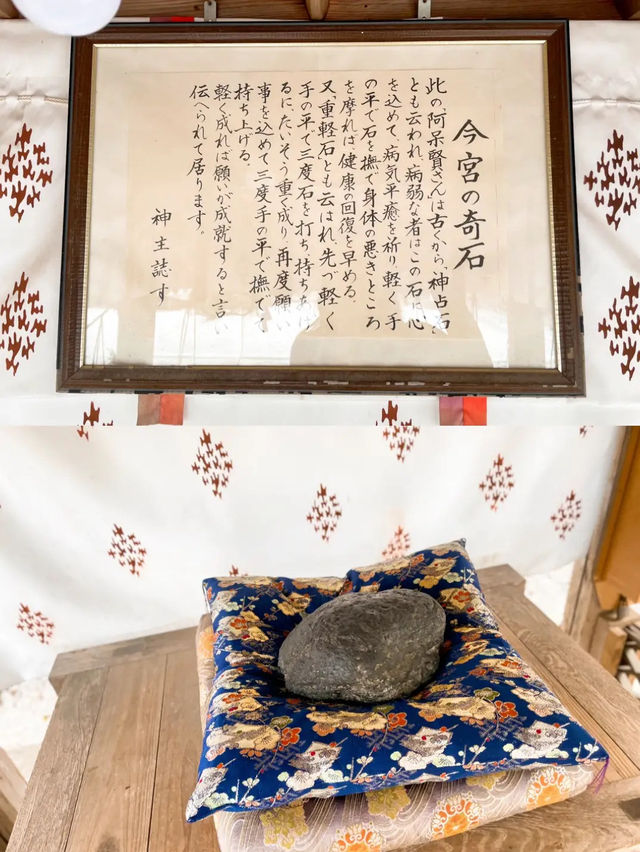 今宮の奇石
此の、阿呆賢さん、は古くから、神占石、
とも云われ、病弱な者はこの石に心
を込めて、病気平癒を祈り、軽く手
の平で石を撫で身体の悪きところ
を摩れば、健康の回復を早める。
又、重軽石、とも云はれ、先づ軽く
手の平で三度石を打ち持ちあげ
るに、たいそう重く成り、再度願い
事を込めて三度手の平で撫でて
持ち上げる。
軽く成れば願いが成就すると言い
伝へられて居ります。
神主誌す